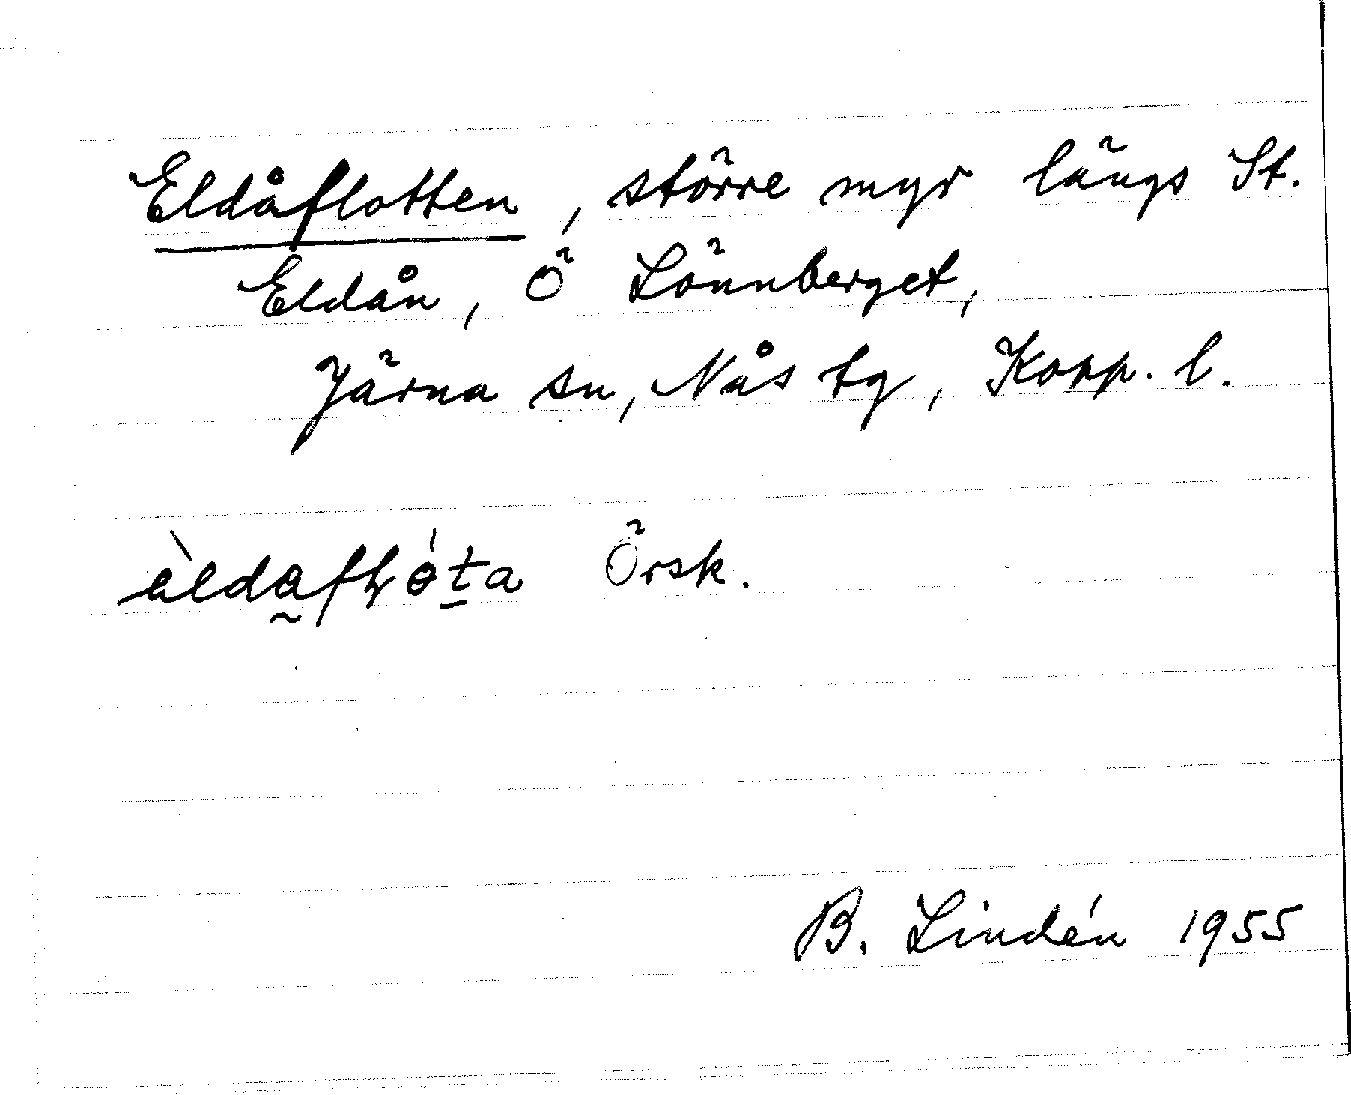 Eldåflotten, större myr längs St.
Eldån, Ö Lönnberget,
Järna sn, Nås tg, Kopp. l.
àldafɫóta Örsk.
B. Lindén 1955